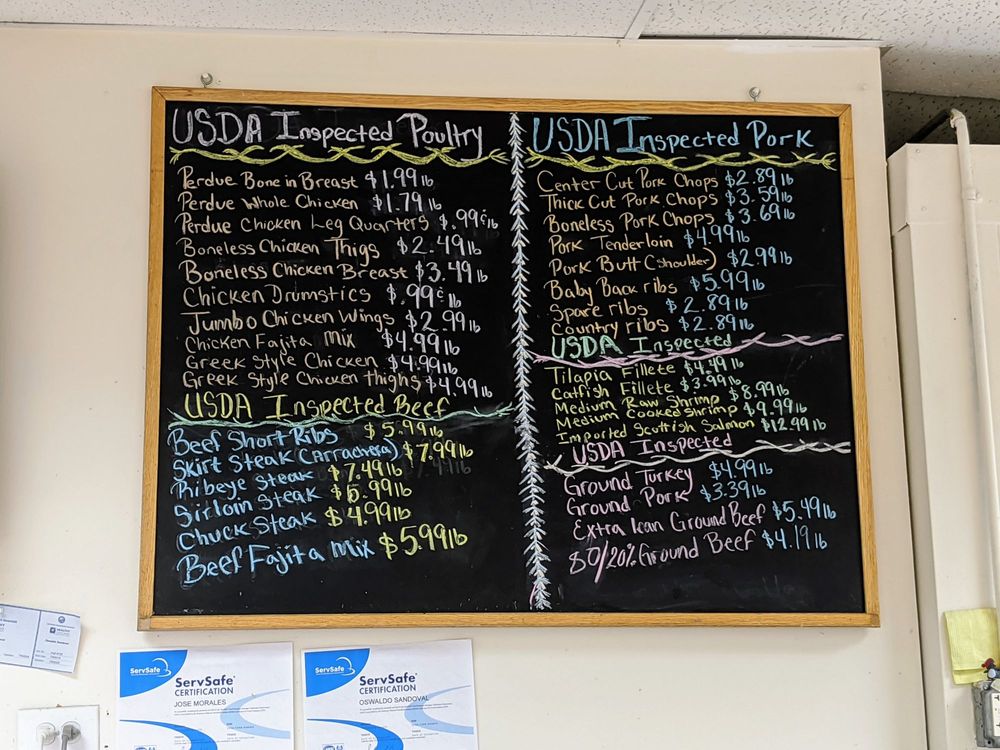 USDA Inspected Poultry
Perdue Bone in Breast $1.99 lb
Perdue Whole Chicken $1.79 lb
Perdue Chicken Leg Quarters $.99¢ lb
Boneless Chicken Thigs $2.49 lb
Boneless Chicken Breast $3.49 lb
Chicken Drumstics $.99¢ lb
Jumbo Chicken Wings $2.99 lb
Chicken Fajita Mix $4.99 lb
Greek Style Chicken $4.99 lb
Greek Style Chicken thighs $4.99 lb
USDA Inspected Beef
Beef Short Ribs $5.99 lb
Skirt Steak (Arrachera) $7.99 lb
Ribeye Steak $7.49 lb
Sirloin Steak $5.99 lb
Chuck Steak $4.99 lb
Beef Fajita Mix $5.99 lb
USDA Inspected Pork
Center Cut Pork Chops $2.89 lb
Thick Cut Pork Chops $3.59 lb
Boneless Pork Chops $3.69 lb
Pork Tenderloin $4.99 lb
Pork Butt (shoulder) $2.99 lb
Baby Back ribs $5.99 lb
Spare ribs $2.89 lb
Country ribs $2.89 lb
USDA Inspected
Tilapia Fillete $4.49 lb
Catfish Fillete $3.99 lb
Medium Raw Shrimp $8.99 lb
Medium Cooked Shrimp $9.99 lb
Imported Scottish Salmon $12.99 lb
USDA Inspected
Ground Turkey $4.99 lb
Ground Pork $3.39 lb
Extra lean Ground Beef $5.49 lb
80/20% Ground Beef $4.19 lb
ServSafe
ServSafe®
CERTIFICATION
JOSE MORALES
ServSafe
ServSafe®
CERTIFICATION
OSWALDO SANDOVAL